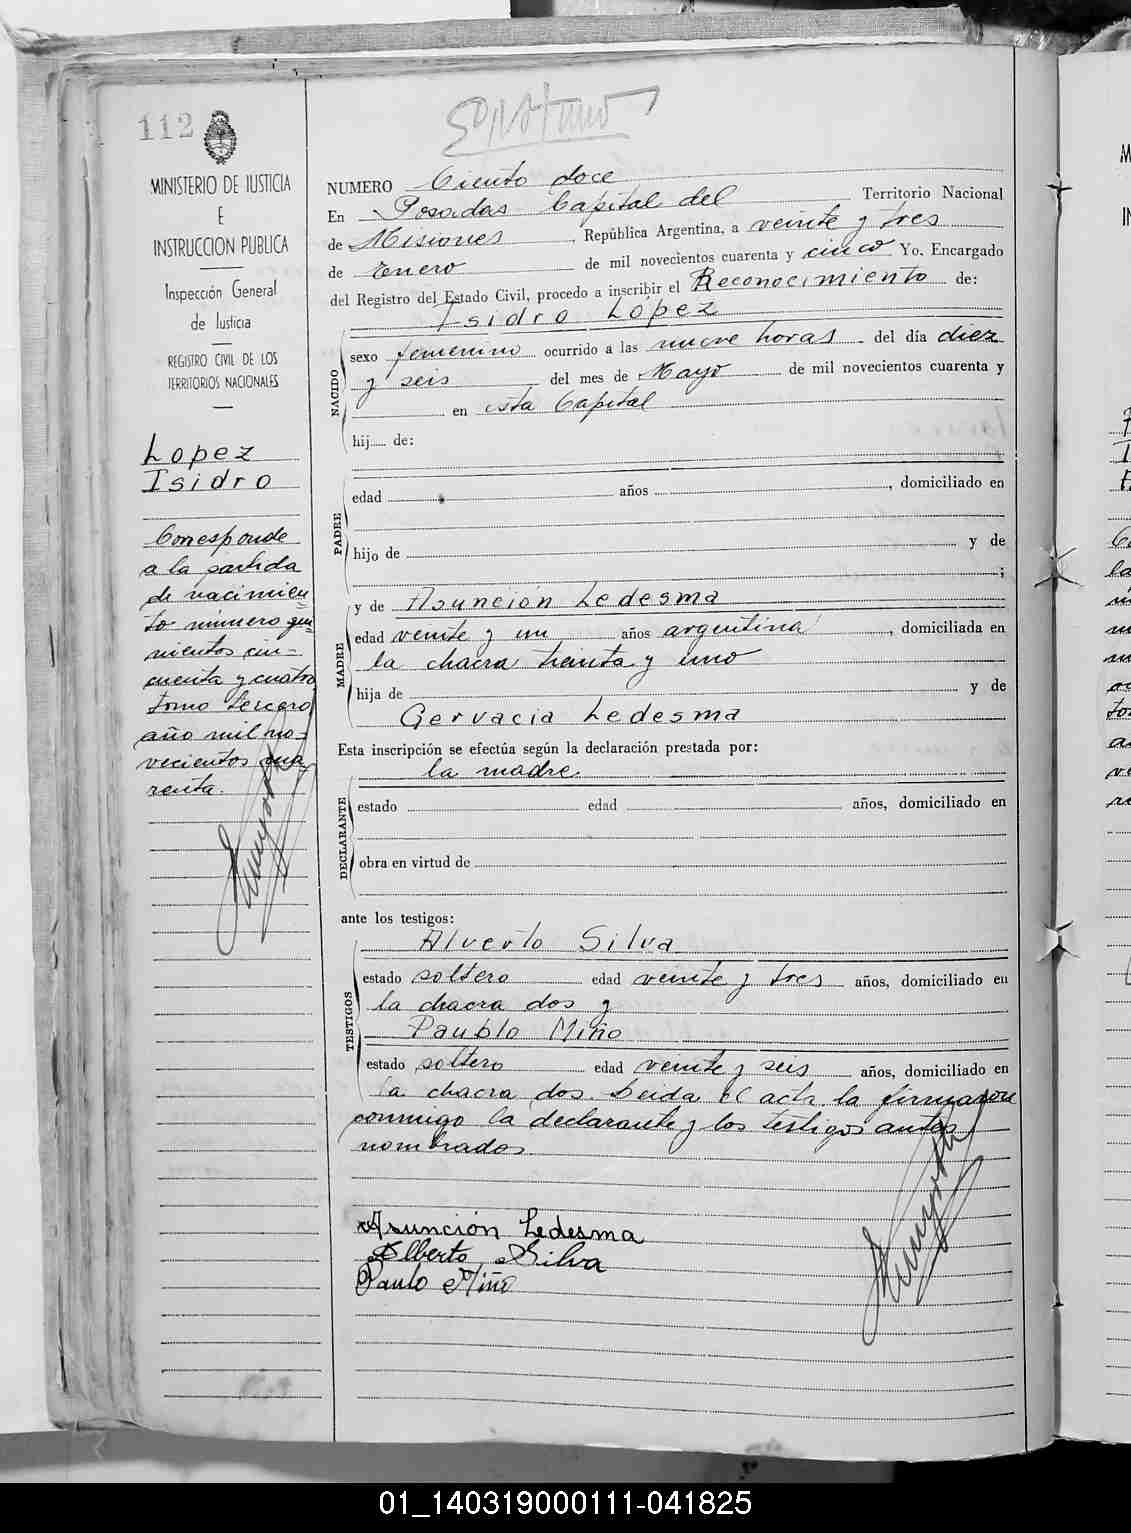 112
MINISTERIO DE JUSTICIA
E
INSTRUCCION PUBLICA
Inspección General
de Justicia
REGISTRO CIVIL DE LOS
TERRITORIOS NACIONALES
Lopez
Isidro
Corresponde
a la partida
de nacimien
to número qui
nientos cin-
cuenta y cuatro
tomo tercero
año mil no-
vecientos cua
renta.
NUMERO Ciento doce
En Posadas Capital del Territorio Nacional
de Misiones, República Argentina, a veinte y tres
de Enero de mil novecientos cuarenta y cinco Yo. Encargado
del Registro del Estado Civil, procedo a inscribir el Reconocimiento de:
Isidro López
NACIDO
sexo femenino ocurrido a las nueve horas del día diez
y seis del mes de Mayo de mil novecientos cuarenta y
en esta Capital
hij de:
PADRE
edad años, domiciliado en
hijo de y de
;
y de Asunción Ledesma
MADRE
edad veinte y un años argentina, domiciliada en
la chacra treinta y uno
hija de y de
Gervacia Ledesma
Esta inscripción se efectúa según la declaración prestada por:
la madre
DECLARANTE
estado edad años, domiciliado en
obra en virtud de
ante los testigos:
Alverto Silva
TESTIGOS
estado soltero edad veinte y tres años, domiciliado en
la chacra dos y
Paublo Miño
estado soltero edad veinte y seis años, domiciliado en
la chacra dos. Leida el acta la firmaron
conmigo la declarante y los testigos antes
nombrados.
Asunción Ledesma
Alberto Silva
Paulo Miño
01_140319000111-041825